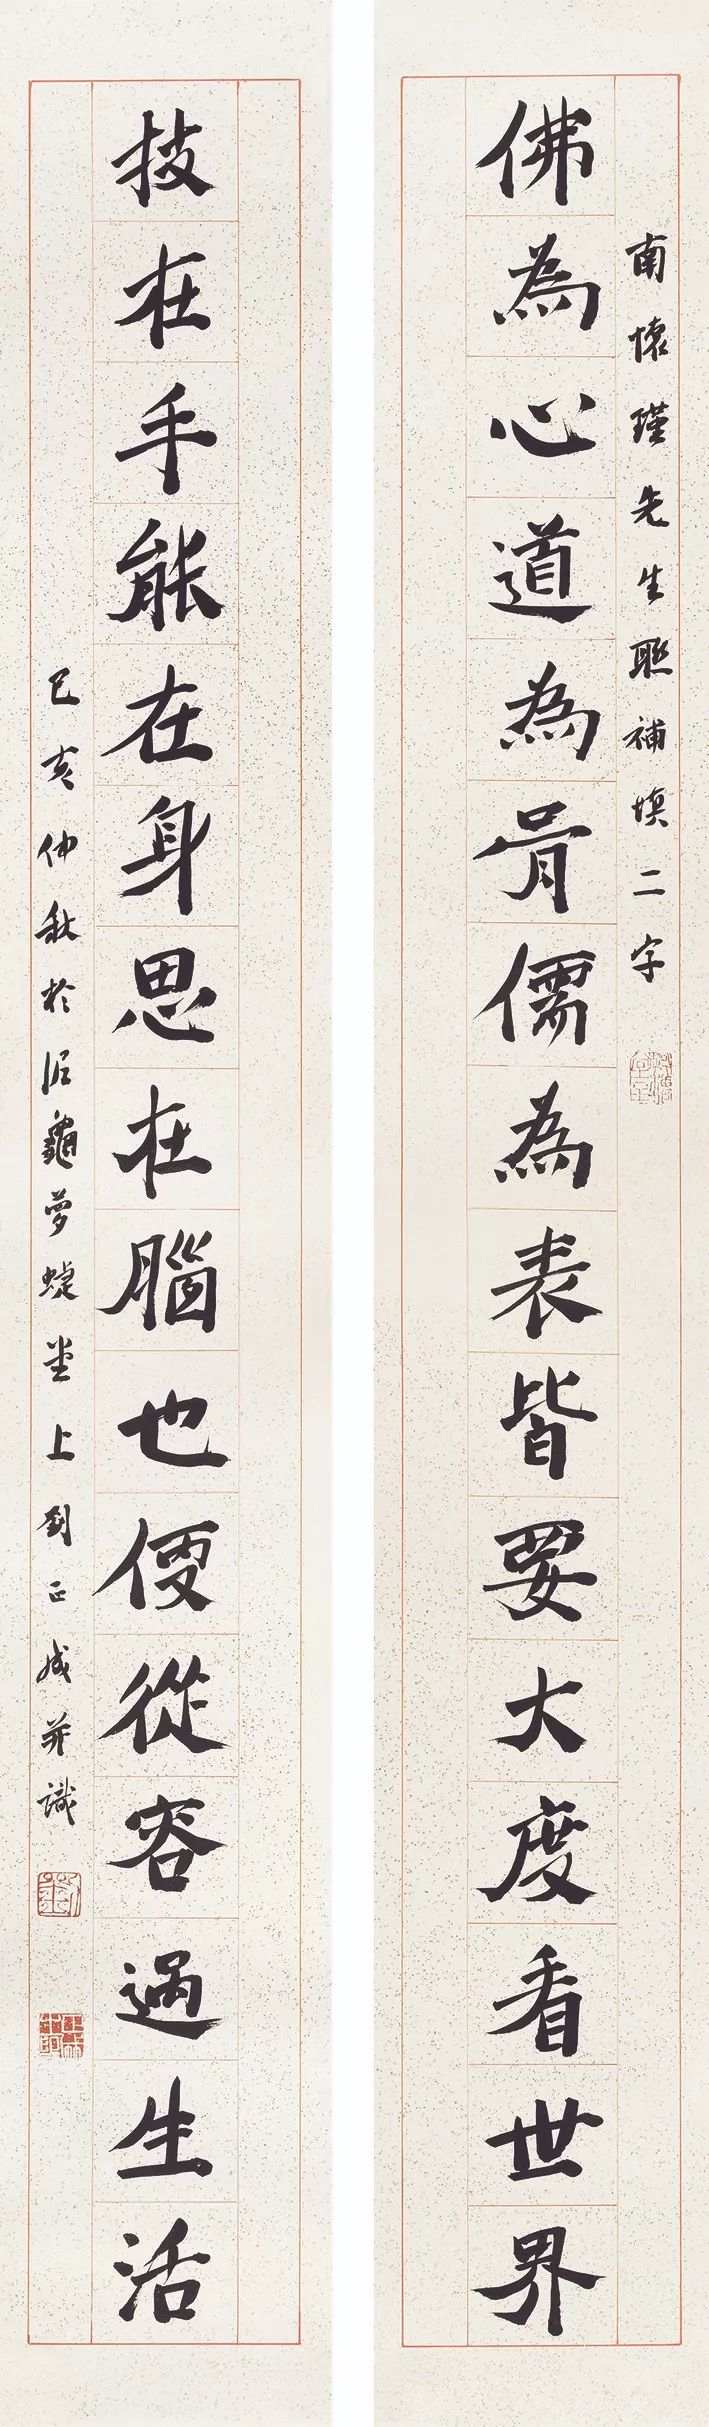 南懷瑾先生聯補填二字
佛為心道為骨儒為表皆要大度看世界
技在手能在身思在腦也便從容過生活
己亥仲秋於泥龜夢蝶堂上劉正成并識